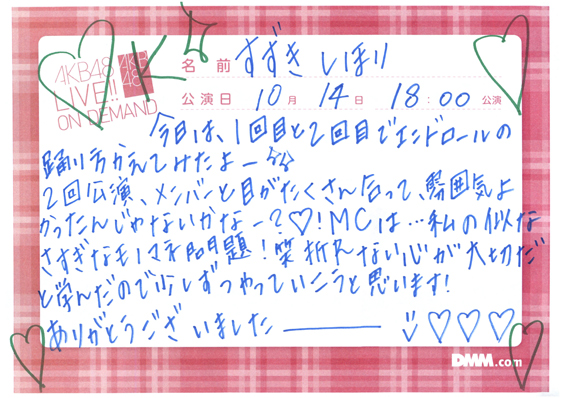 AKB48
LIVE!!
ON DEMAND
AKB
48
K
名前 すずきしほり
公演日 10月 14日 18:00 公演
今日は、1回目と2回目でエンドロールの
踊り方かえてみたよー
2回公演、メンバーと目がたくさん合って、雰囲気よ
かったんじゃないかなー?♡!MCは…私の似な
さすぎなモノマネ問題!笑 折れない心が大切だ
と学んだので少しずつやっていこうと思います!
ありがとうございました―――― ♡♡♡
DMM.com